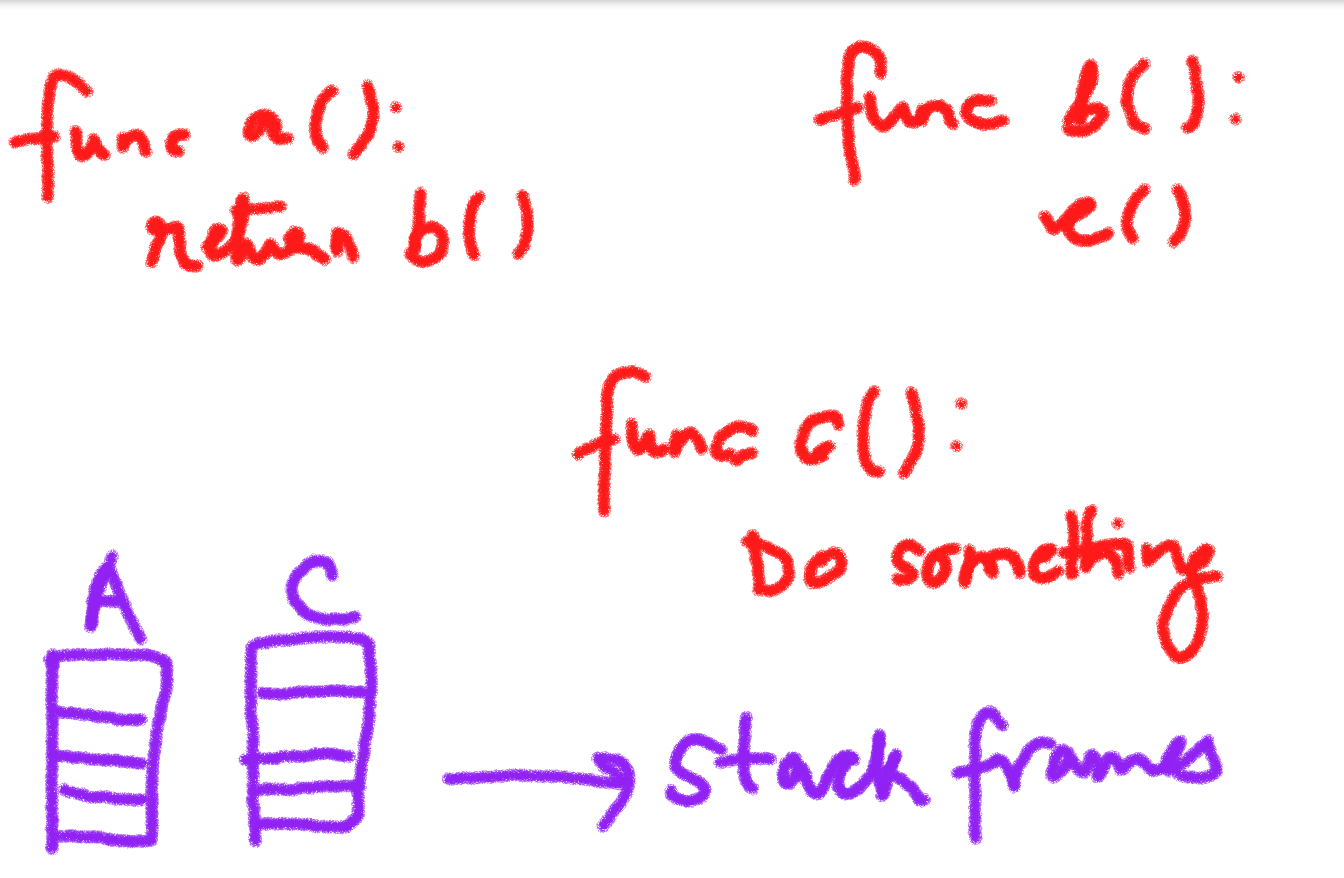 func a():
return b()
func b():
c()
func c():
Do something
A
C
stack frames